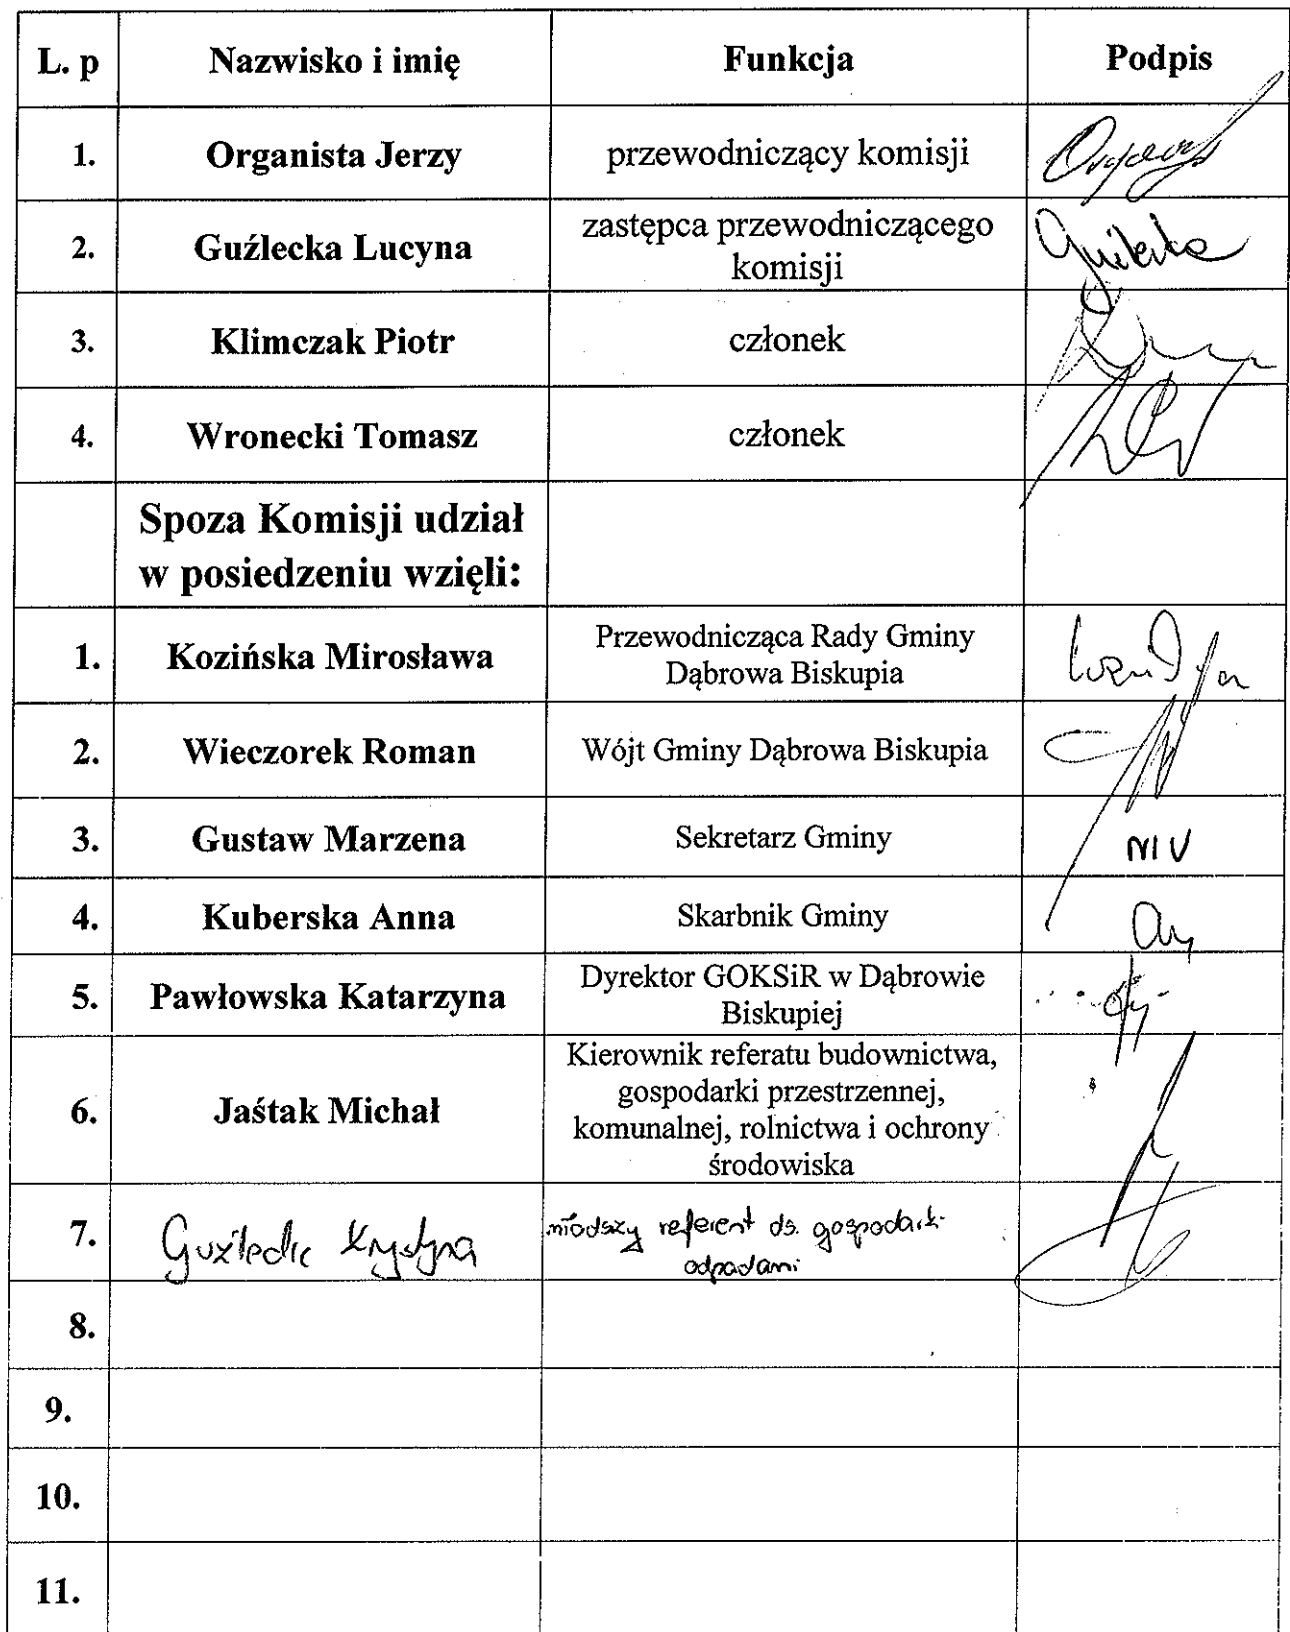 L. p Nazwisko i imię Funkcja Podpis
1. Organista Jerzy przewodniczący komisji
2. Guźlecka Lucyna zastępca przewodniczącego
komisji
3. Klimczak Piotr członek
4. Wronecki Tomasz członek
Spoza Komisji udział
w posiedzeniu wzięli:
1. Kozińska Mirosława Przewodnicząca Rady Gminy
Dąbrowa Biskupia
2. Wieczorek Roman Wójt Gminy Dąbrowa Biskupia
3. Gustaw Marzena Sekretarz Gminy
4. Kuberska Anna Skarbnik Gminy
5. Pawłowska Katarzyna Dyrektor GOKSiR w Dąbrowie
Biskupiej
6. Jaśtak Michał Kierownik referatu budownictwa,
gospodarki przestrzennej,
komunalnej, rolnictwa i ochrony
środowiska
7. Krystyna młodszy referent ds. gospodarki
odpadami
8.
9.
10.
11.